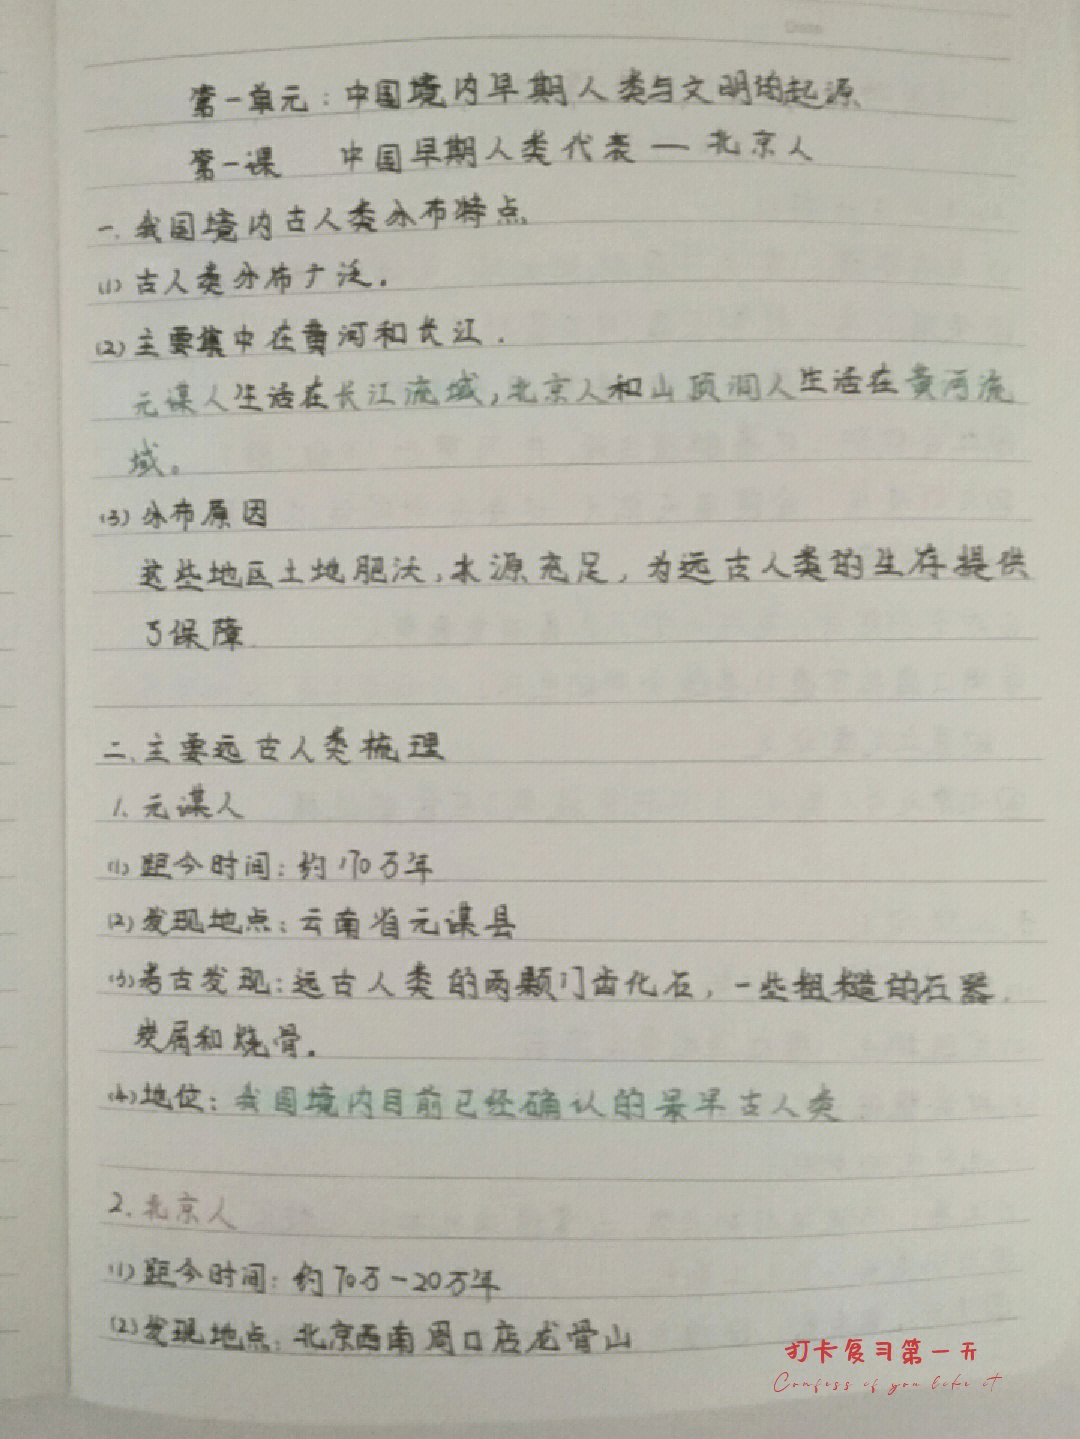 第一单元：中国境内早期人类与文明的起源
第一课 中国早期人类代表一北京人
一、我国境内古人类分布特点
(1) 古人类分布广泛.
(2) 主要集中在黄河和长江.
元谋人生活在长江流域,北京人和山顶洞人生活在黄河流
域。
(3) 分布原因
这些地区土地肥沃,水源充足,为远古人类的生存提供
了保障.
二、主要远古人类梳理
1. 元谋人
(1) 距今时间: 约170万年
(2) 发现地点: 云南省元谋县
(3) 考古发现: 远古人类的两颗门齿化石, 一些粗糙的石器、
炭屑和烧骨.
(4) 地位: 我国境内目前已经确认的最早古人类
2. 北京人
(1) 距今时间: 约70万-20万年
(2) 发现地点: 北京西南周口店龙骨山
打卡复习第一天
Confess if you like it